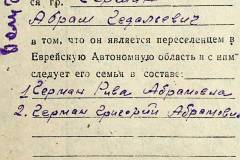 ся гр. Герман
Абрам Гедальевич
в том, что он является переселенцем в
Еврейскую Автономную область и с ним
следует его семья в составе:
1. Герман Рива Абрамовна
2. Герман Григорий Абрамович